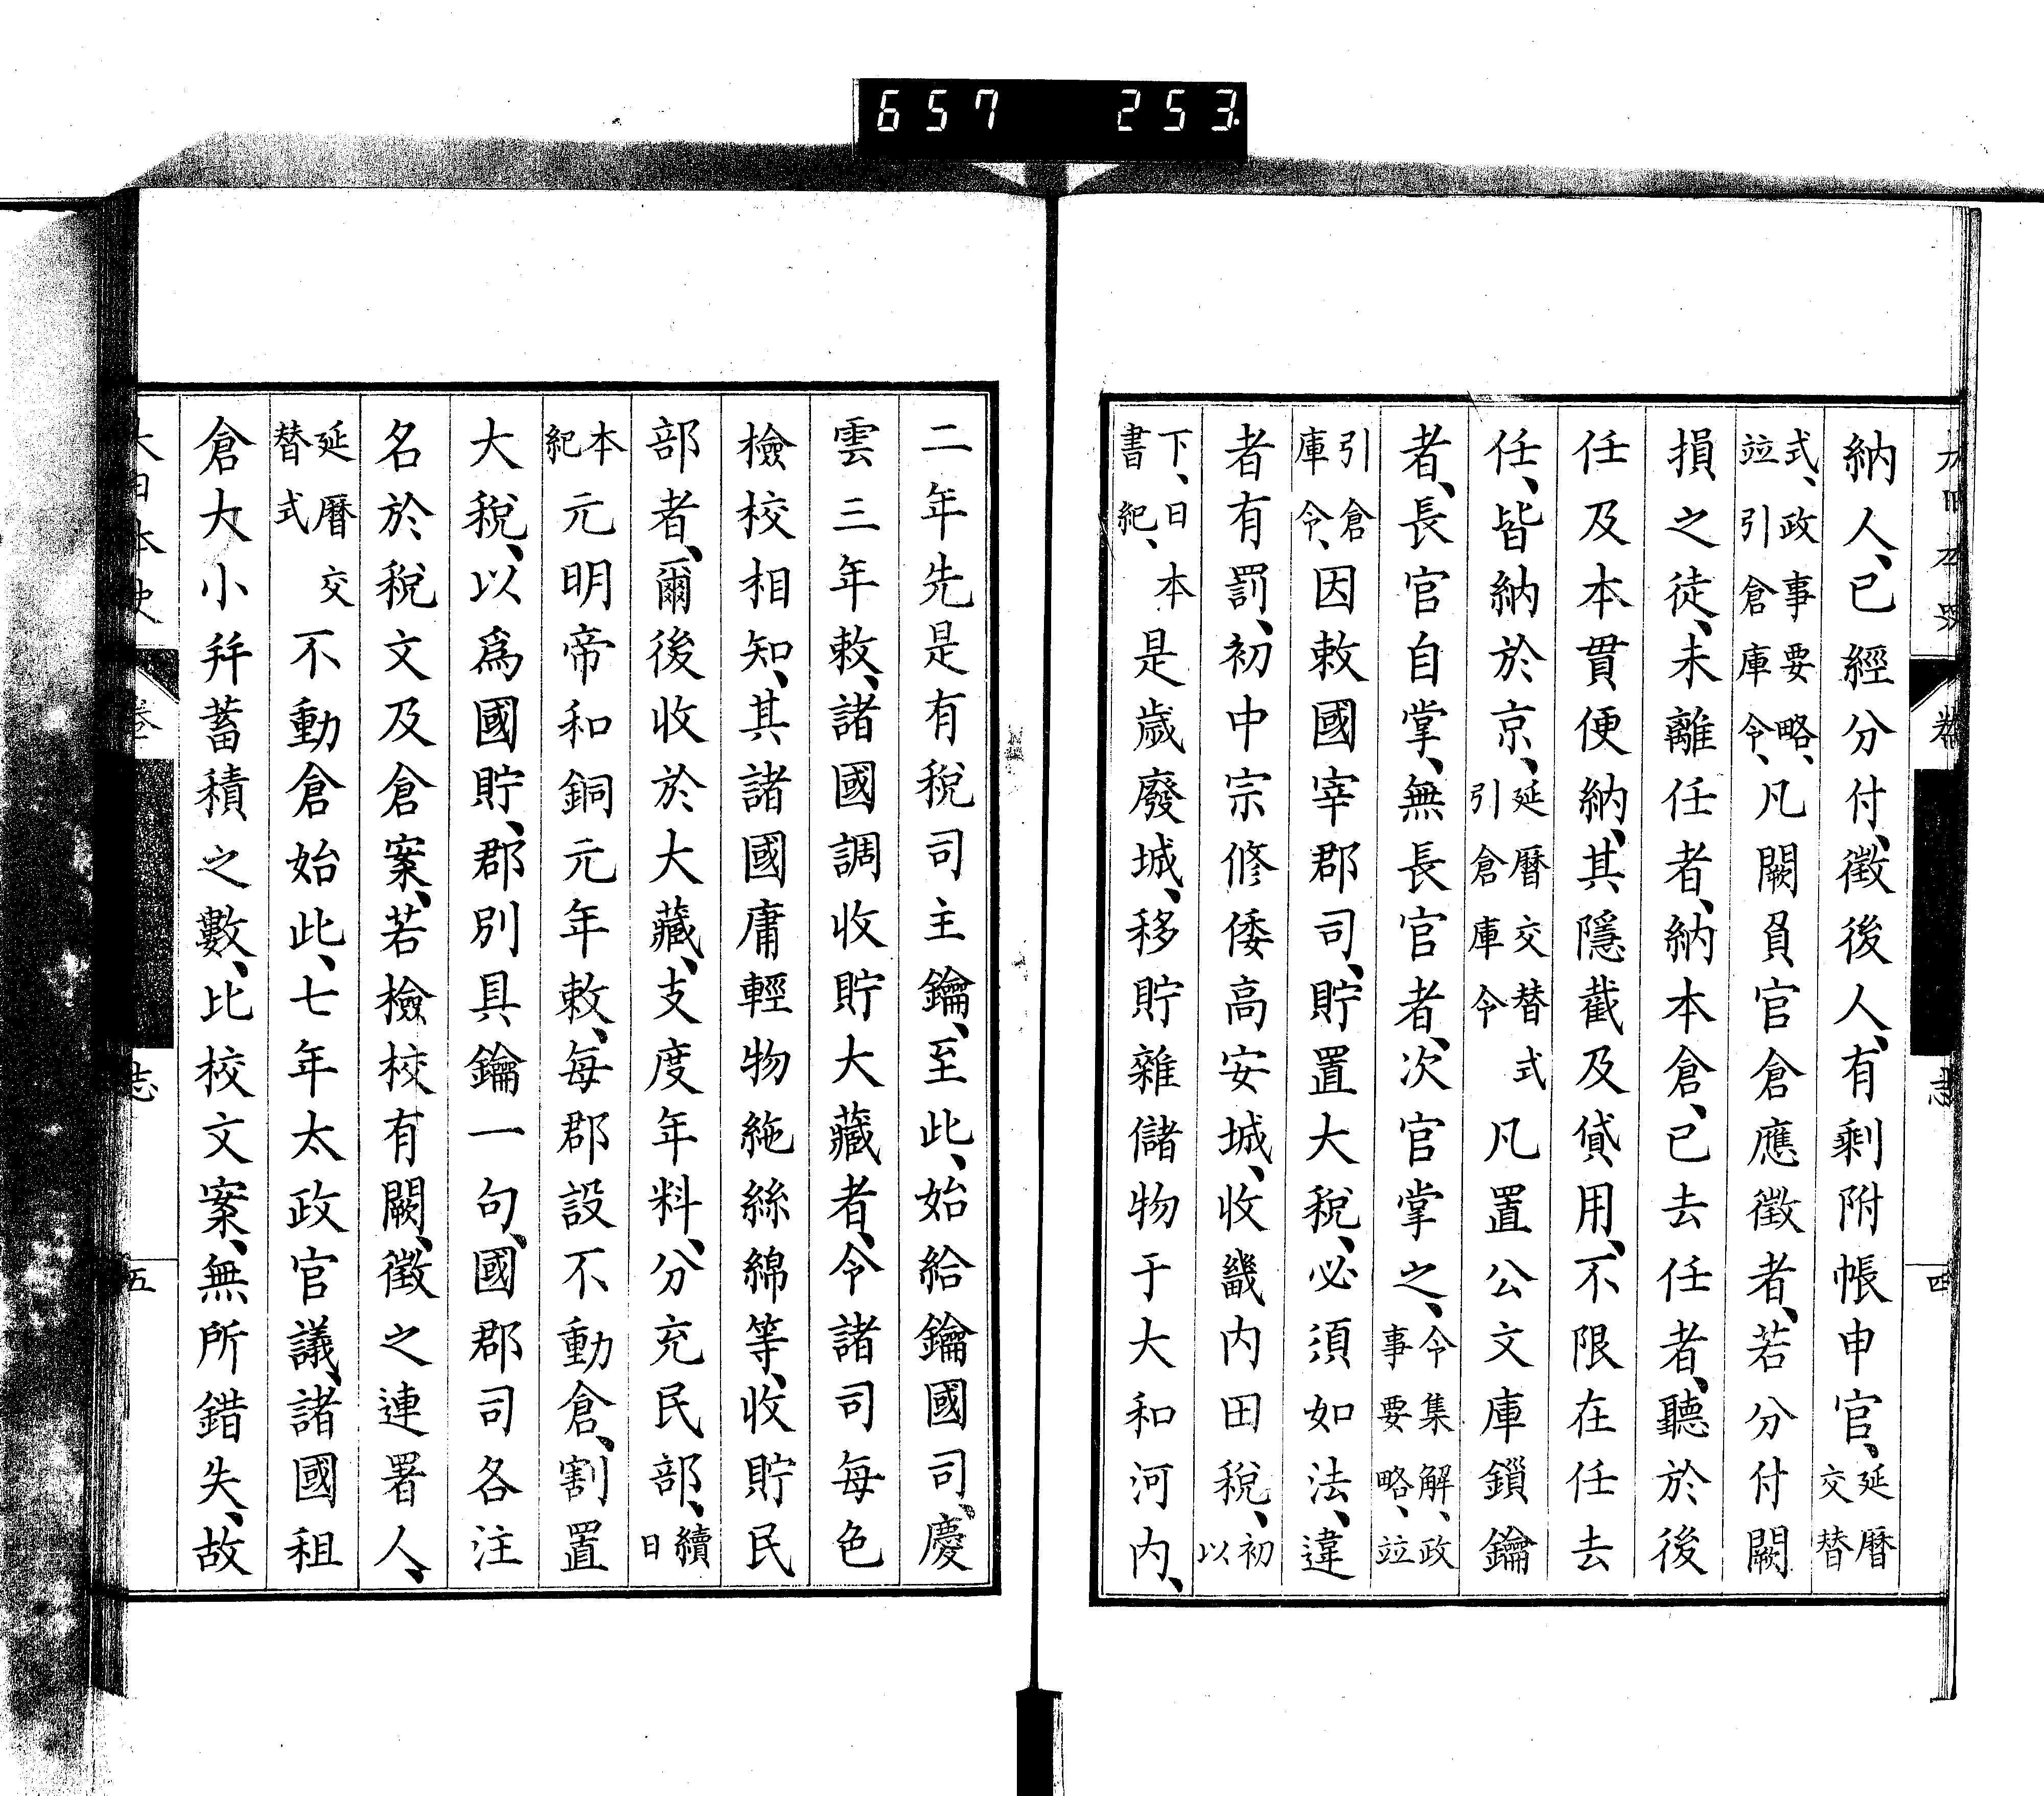 657 253
納人、已經分付、徵後人、有剩附帳申官、延曆交替
式、政事要略、竝引倉庫令、凡闕負官倉應徵者、若分付闕
損之徒、未離任者、納本倉、已去任者、聽於後
任及本貫便納、其隱截及貸用、不限在任去
任、皆納於京、延曆交替式引倉庫令凡置公文庫鎖鑰
者、長官自掌、無長官者、次官掌之、令集解、政事要略、竝
引倉庫令、因敕國宰郡司、貯置大稅、必須如法、違
者有罰、初中宗修倭高安城、收畿內田稅、初以
下、日本書紀、是歲廢城、移貯雜儲物于大和河內、
志
四
二年先是有稅司主鑰、至此、始給鑰國司、慶
雲三年敕、諸國調收貯大藏者、令諸司每色
檢校相知、其諸國庸輕物絁絲綿等、收貯民
部者、爾後收於大藏、支度年料、分充民部、續日
本紀元明帝和銅元年敕、每郡設不動倉、割置
大稅、以爲國貯、郡別具鑰一句、國郡司各注
名於稅文及倉案、若檢校有闕、徵之連署人、
延曆交替式不動倉始此、七年太政官議、諸國租
倉大小幷蓄積之數、比校文案、無所錯失、故
大日本史
卷
志
五